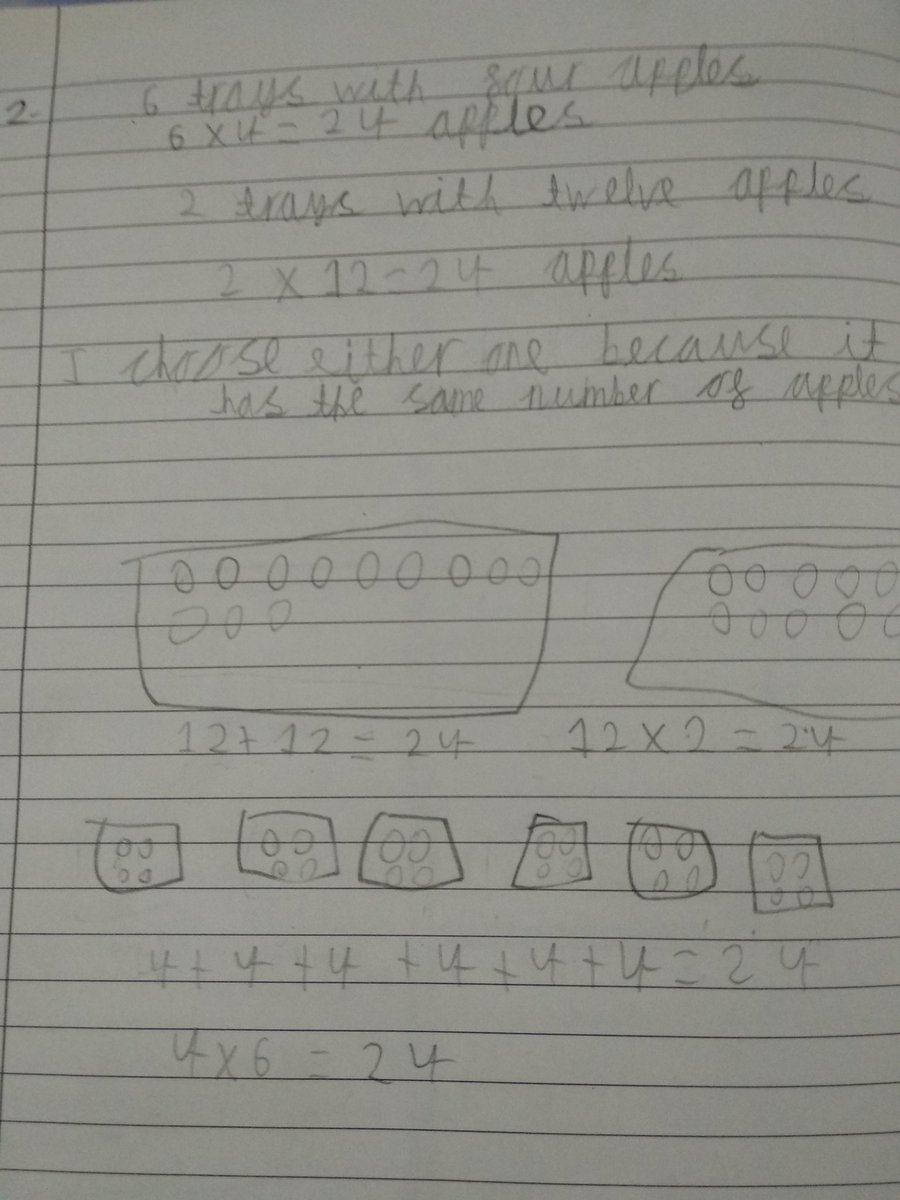 2.
6 trays with four apples
6 x 4 = 24 apples
2 trays with twelve apples
2 x 12 = 24 apples
I choose either one because it
has the same number of apples
12 + 12 = 24 12 x 2 = 24
4 + 4 + 4 + 4 + 4 + 4 = 24
4 x 6 = 24